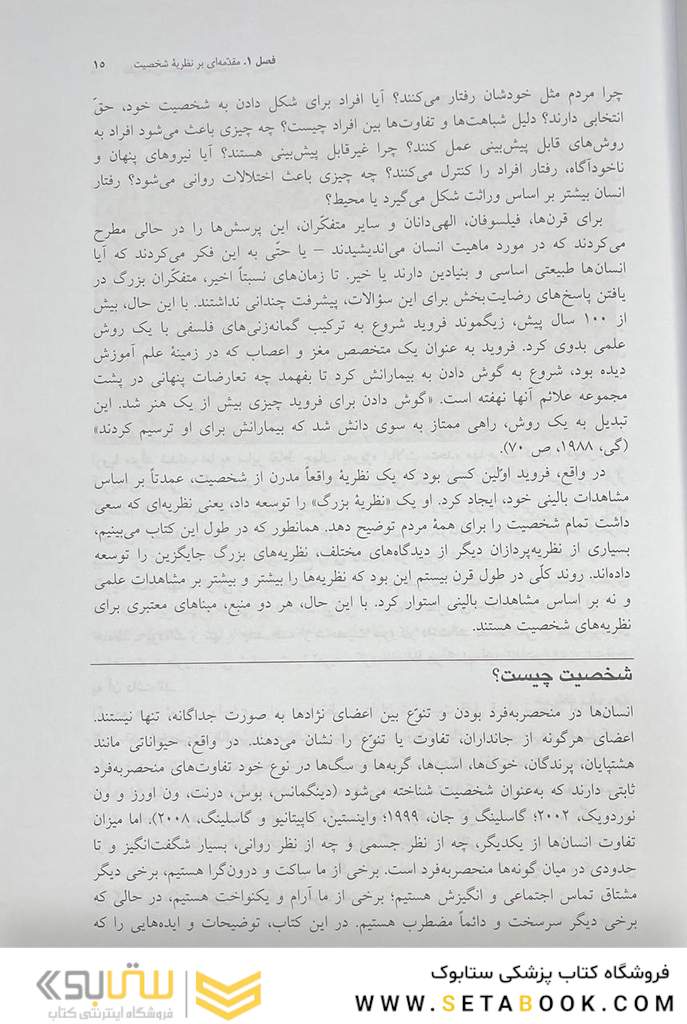 فصل ۱. مقدّمه‌ای بر نظریهٔ شخصیت ۱۵
چرا مردم مثل خودشان رفتار می‌کنند؟ آیا افراد برای شکل دادن به شخصیت خود، حقّ
انتخابی دارند؟ دلیل شباهت‌ها و تفاوت‌ها بین افراد چیست؟ چه چیزی باعث می‌شود افراد به
روش‌های قابل پیش‌بینی عمل کنند؟ چرا غیرقابل پیش‌بینی هستند؟ آیا نیروهای پنهان و
ناخودآگاه، رفتار افراد را کنترل می‌کنند؟ چه چیزی باعث اختلالات روانی می‌شود؟ رفتار
انسان بیشتر بر اساس وراثت شکل می‌گیرد یا محیط؟
برای قرن‌ها، فیلسوفان، الهی‌دانان و سایر متفکّران، این پرسش‌ها را در حالی مطرح
می‌کردند که در مورد ماهیت انسان می‌اندیشیدند – یا حتّی به این فکر می‌کردند که آیا
انسان‌ها طبیعتی اساسی و بنیادین دارند یا خیر. تا زمان‌های نسبتاً اخیر، متفکّران بزرگ در
یافتن پاسخ‌های رضایت‌بخش برای این سؤالات، پیشرفت چندانی نداشتند. با این حال، بیش
از ۱۰۰ سال پیش، زیگموند فروید شروع به ترکیب گمانه‌زنی‌های فلسفی با یک روش
علمی بدوی کرد. فروید به عنوان یک متخصص مغز و اعصاب که در زمینهٔ علم آموزش
دیده بود، شروع به گوش دادن به بیمارانش کرد تا بفهمد چه تعارضات پنهانی در پشت
مجموعه علائم آنها نهفته است. «گوش دادن برای فروید چیزی بیش از یک هنر شد. این
تبدیل به یک روش، راهی ممتاز به سوی دانش شد که بیمارانش برای او ترسیم کردند»
(گی، ۱۹۸۸، ص ۷۰).
در واقع، فروید اوّلین کسی بود که یک نظریهٔ واقعاً مدرن از شخصیت، عمدتاً بر اساس
مشاهدات بالینی خود، ایجاد کرد. او یک «نظریهٔ بزرگ» را توسعه داد، یعنی نظریه‌ای که سعی
داشت تمام شخصیت را برای همهٔ مردم توضیح دهد. همانطور که در طول این کتاب می‌بینیم،
بسیاری از نظریه‌پردازان دیگر از دیدگاه‌های مختلف، نظریه‌های بزرگ جایگزین را توسعه
داده‌اند. روند کلّی در طول قرن بیستم این بود که نظریه‌ها را بیشتر و بیشتر بر مشاهدات علمی
و نه بر اساس مشاهدات بالینی استوار کرد. با این حال، هر دو منبع، مبناهای معتبری برای
نظریه‌های شخصیت هستند.
شخصیت چیست؟
انسان‌ها در منحصربه‌فرد بودن و تنوّع بین اعضای نژادها به صورت جداگانه، تنها نیستند.
اعضای هرگونه از جانداران، تفاوت یا تنوّع را نشان می‌دهند. در واقع، حیواناتی مانند
هشتپایان، پرندگان، خوک‌ها، اسب‌ها، گربه‌ها و سگ‌ها در نوع خود تفاوت‌های منحصربه‌فرد
ثابتی دارند که به‌عنوان شخصیت شناخته می‌شود (دینگمانس، بوس، درنت، ون اورز و ون
نوردویک، ۲۰۰۲؛ گاسلینگ و جان، ۱۹۹۹؛ واینستین، کاپیتانیو و گاسلینگ، ۲۰۰۸). اما میزان
تفاوت انسان‌ها از یکدیگر، چه از نظر جسمی و چه از نظر روانی، بسیار شگفت‌انگیز و تا
حدودی در میان گونه‌ها منحصربه‌فرد است. برخی از ما ساکت و درون‌گرا هستیم، برخی دیگر
مشتاق تماس اجتماعی و انگیزش هستیم؛ برخی از ما آرام و یکنواخت هستیم، در حالی که
برخی دیگر سرسخت و دائماً مضطرب هستیم. در این کتاب، توضیحات و ایده‌هایی را که
فروشگاه کتاب پزشکی ستابوک
WWW.SETABOOK.COM
ستابوک
فروشگاه اینترنتی کتاب